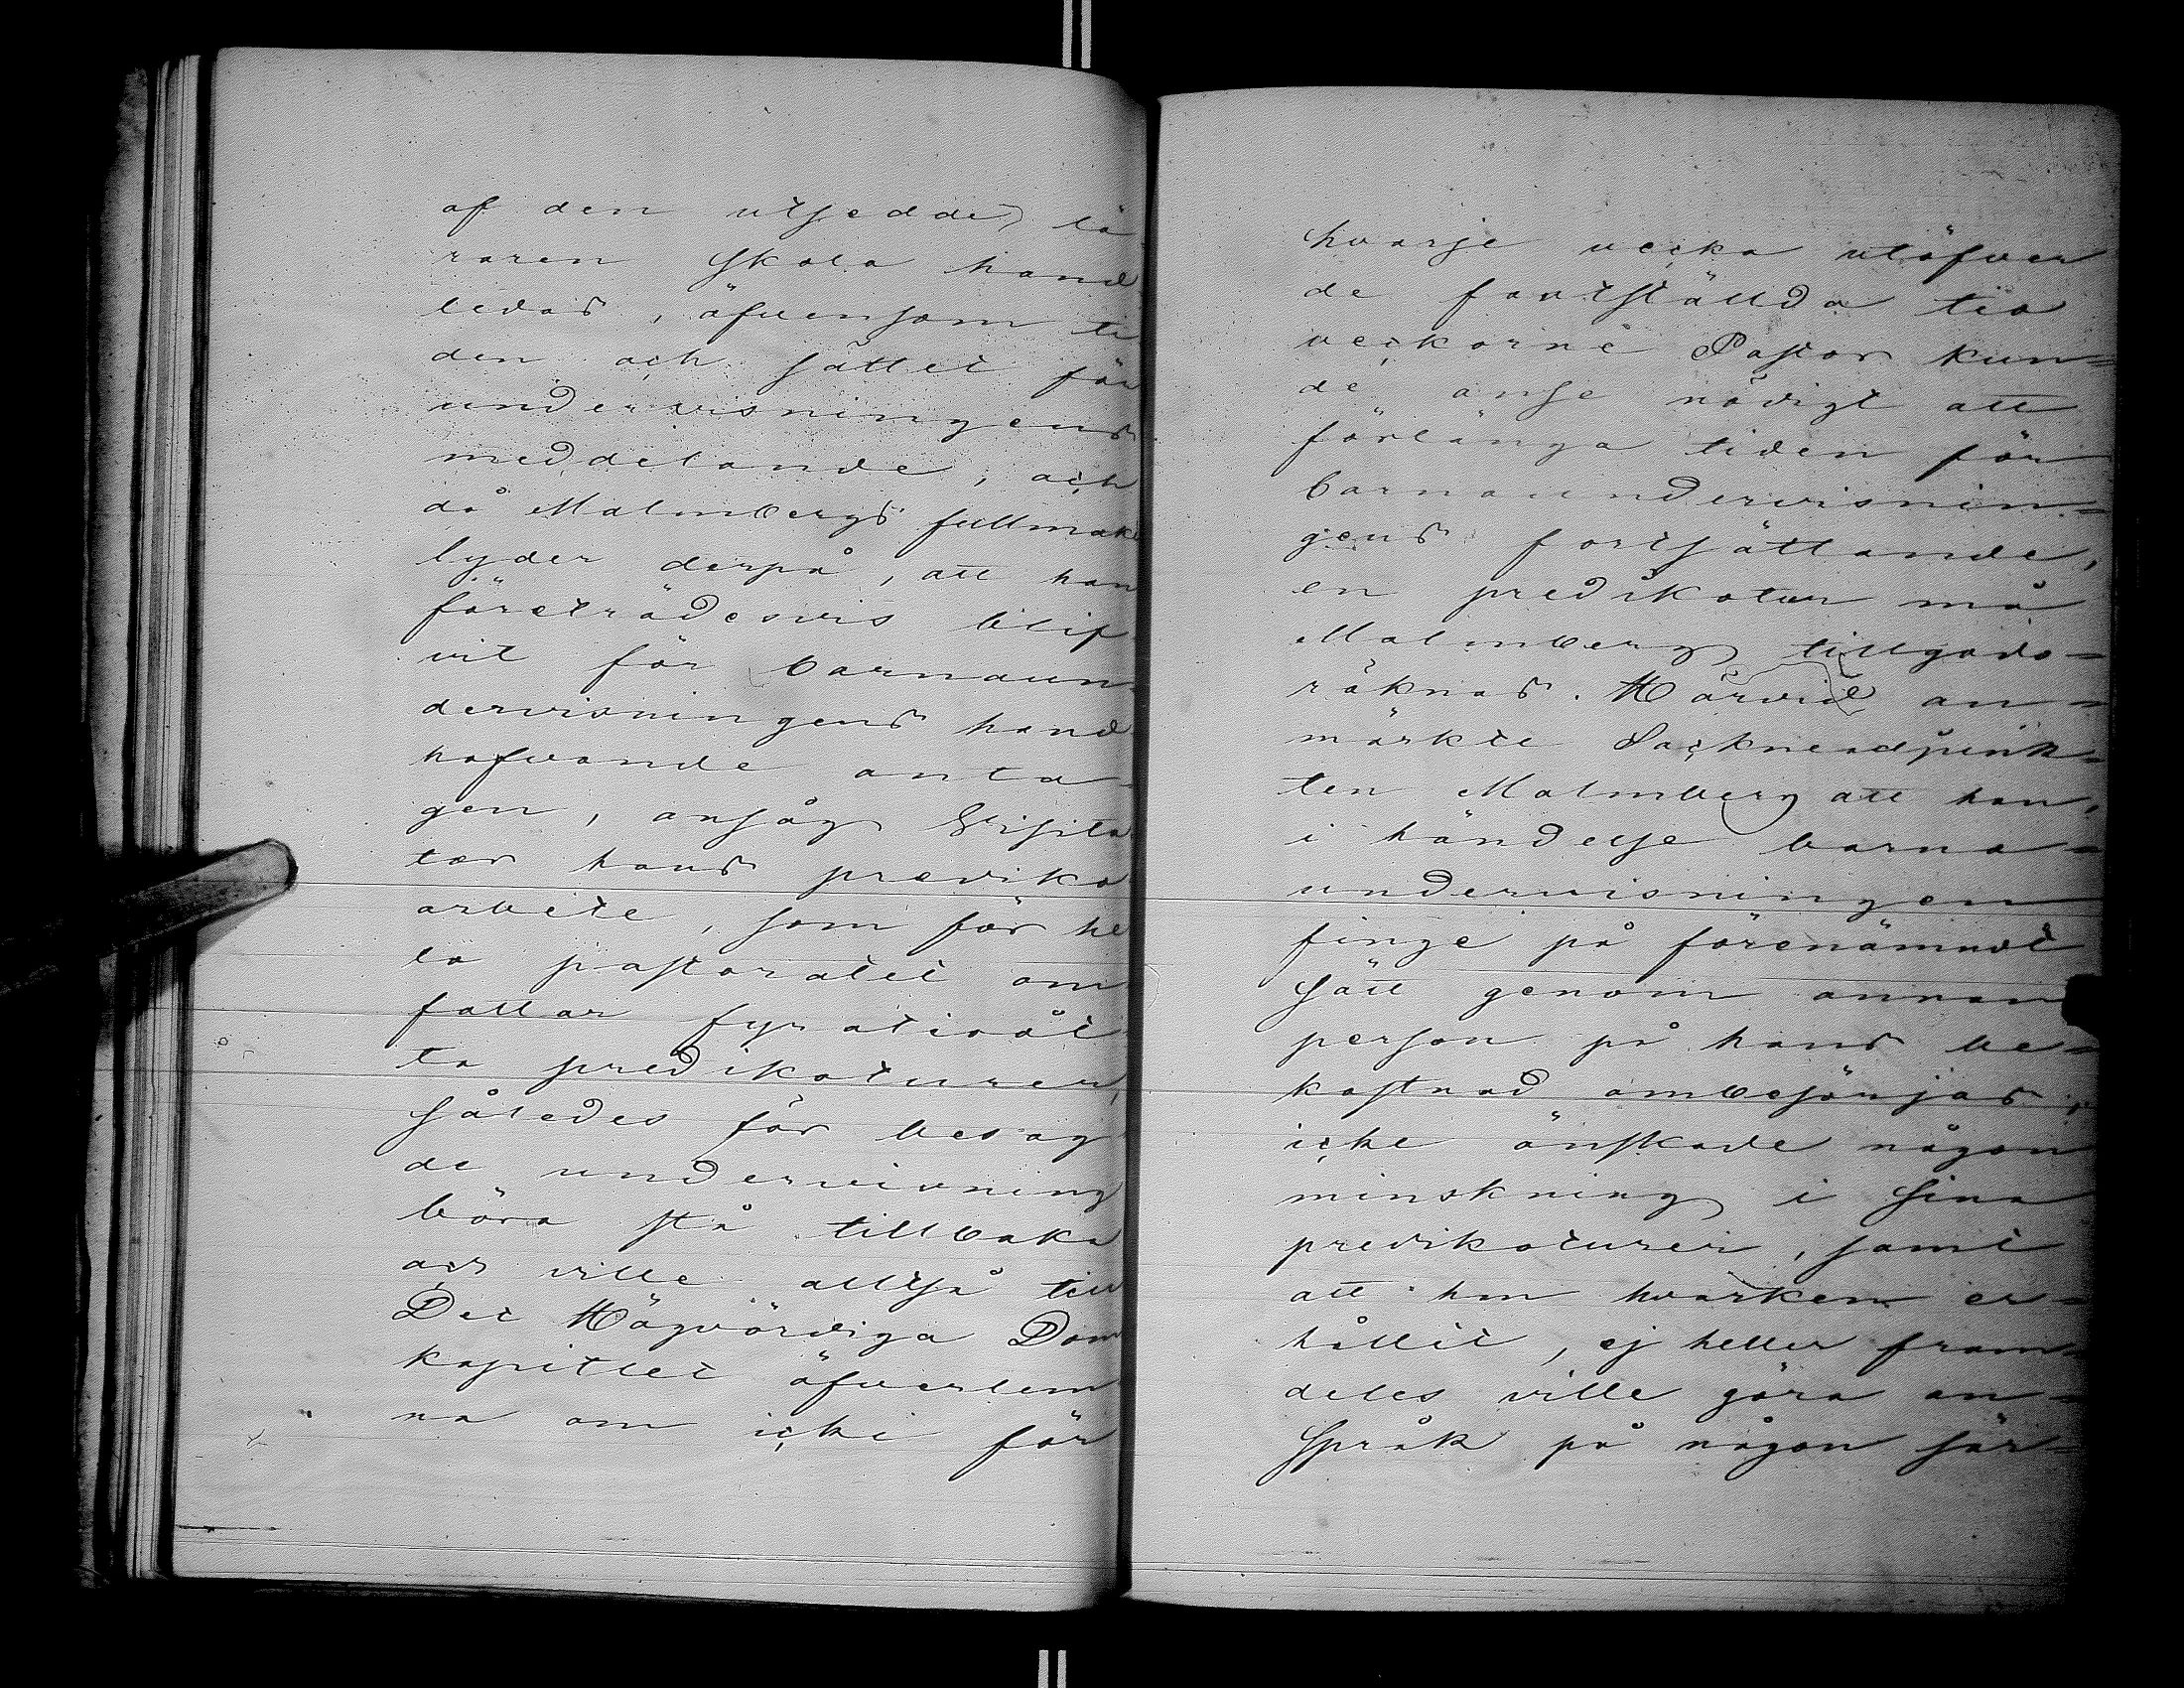 af den utsedde lä
raren skola hand
ledas, äfvensom ti
den och sättet för
undervisningens
meddelande, och
då Malmbergs fullmak
lyder derpå, att han
företrädesvis blif
vit för barnaun
dervisningens hand
hafvande anta
gen, ansåg Visita
tor hans prediko
arbete, som för he
la pastoratet om
fattar fyratioåt
ta predikaturer,
således för besag
de undervisning
böra stå tillbaka
och ville alltså till
Det Högvördiga Dom
kapitlet öfverlem
na om icke för
hvarje vecka utöfver
de fastställda tio
veckorne Pastor kun=
de anse nödigt att
förlänga tiden för
barnaundervisnin=
gens fortsättande,
en predikatur må
Malmberg tillgodo=
räknas. Härvid an=
märkte Sockneadjunk=
ten Malmberg att han,
i händelse barna=
undervisningen
finge på förenämndt
sätt genom annan
person på hans be=
kostnad ombesörjas,
icke önskade någon
minskning i sina
predikaturer, samt
att han hvarken er=
hållit, ej heller fram=
deles ville göra an=
språk på någon sär=